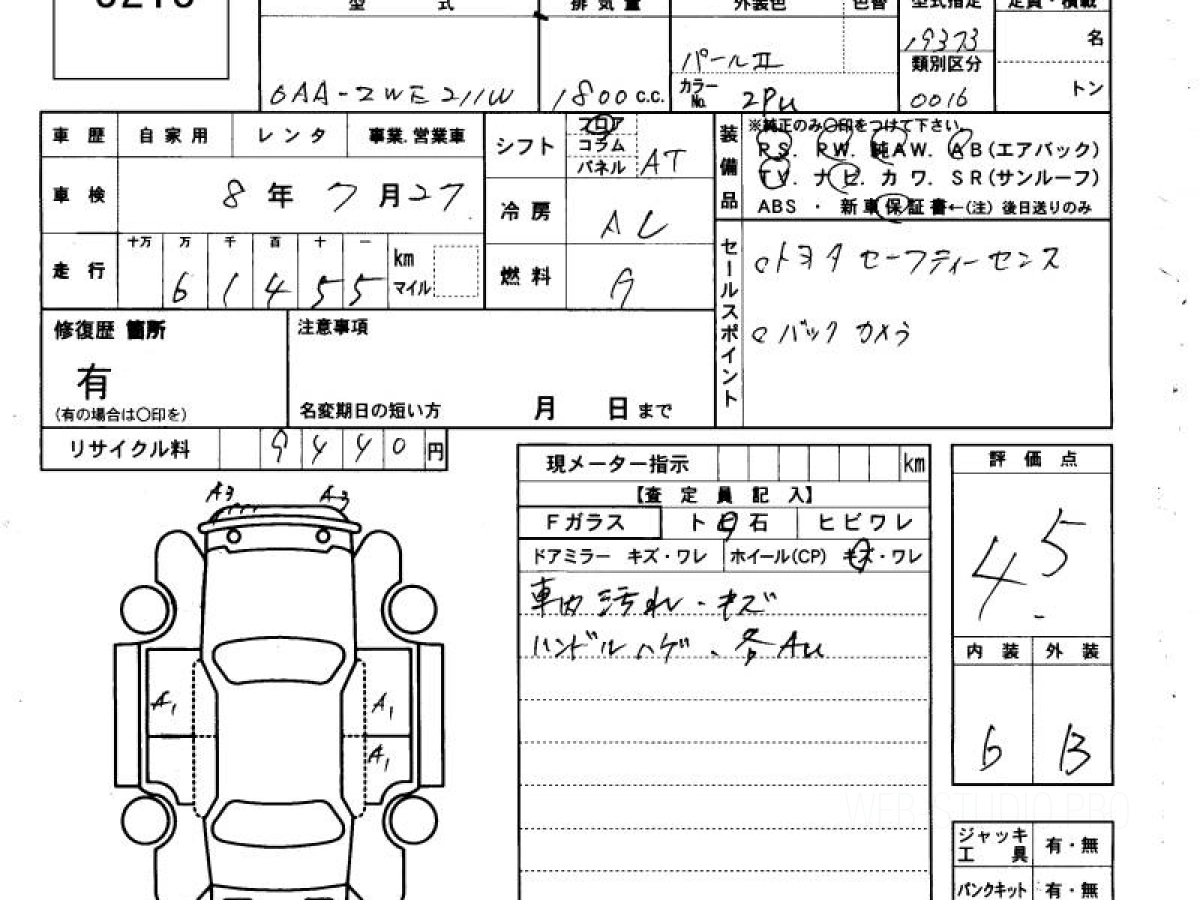 型 式
排気量
外装色
色替
型式指定
定員・積載
6AA-ZWE211W
1800 c.c.
パールII
カラーNo. 2PU
19373
類別区分
0016
名
トン
車歴 自家用 レンタ 事業.営業車
車検 8年7月27
走行 十万 万 千 百 十 一
6 1 4 5 5 km マイル
シフト フロア コラム パネル AT
冷房 AC
燃料 G
装備品
※純正のみ〇印をつけて下さい。
PS. PW. 純AW. AB(エアバック)
TV. ナビ. カワ. SR(サンルーフ)
ABS ・ 新車保証書←(注) 後日送りのみ
セールスポイント
トヨタ セーフティーセンス
バックカメラ
修復歴 箇所
有
(有の場合は〇印を)
注意事項
名変期日の短い方 月 日まで
リサイクル料 9440円
現メーター指示 km
【査定員記入】
Fガラス ト日石 ヒビワレ
ドアミラー キズ・ワレ ホイール(CP) キズ・ワレ
車内汚れ・キズ
ハンドルハゲ、各AU
評価点
4.5
内装 外装
b B
ジャッキ工具 有・無
パンクキット 有・無
A3 A3
A1 A1
A1
WEB STUDIO PRO